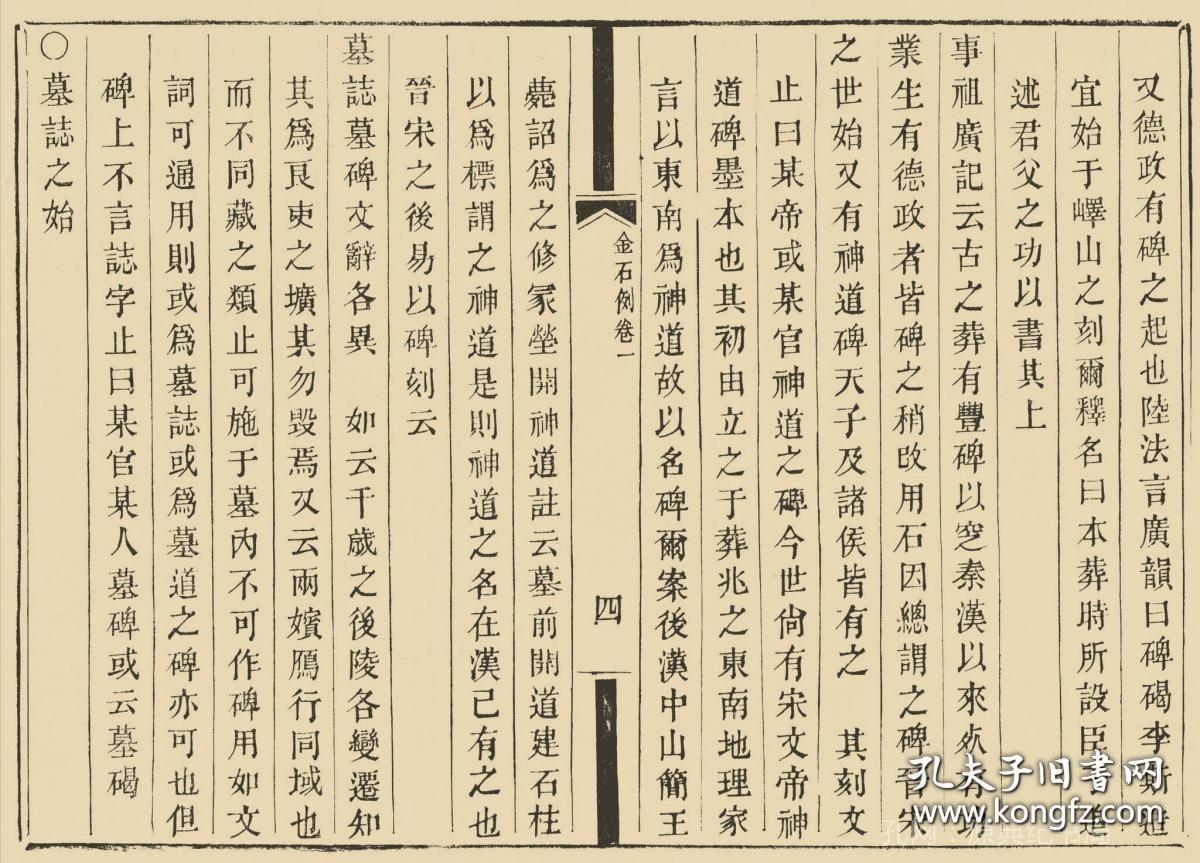 又德政有碑之起也陸法言廣韻曰碑碣李斯造
宜始于嶧山之刻爾釋名曰本葬時所設臣子追
述君父之功以書其上
事祖廣記云古之葬有豐碑以窆秦漢以來死有功
業生有德政者皆碑之稍改用石因總謂之碑晉宋
之世始又有神道碑天子及諸侯皆有之　其刻文
止曰某帝或某官神道之碑今世尙有宋文帝神
道碑墨本也其初由立之于葬兆之東南地理家
言以東南爲神道故以名碑爾案後漢中山簡王
金石例卷一
四
薨詔爲之修冡塋開神道註云墓前開道建石柱
以爲標謂之神道是則神道之名在漢已有之也
晉宋之後易以碑刻云
墓誌墓碑文辭各異　如云千歲之後陵各變遷知
其爲良吏之壙其勿毀焉又云兩嬪鴈行同域也
而不同藏之類止可施于墓內不可作碑用如文
詞可通用則或爲墓誌或爲墓道之碑亦可也但
碑上不言誌字止曰某官某人墓碑或云墓碣
○墓誌之始
孔夫子旧書网
www.kongfz.com